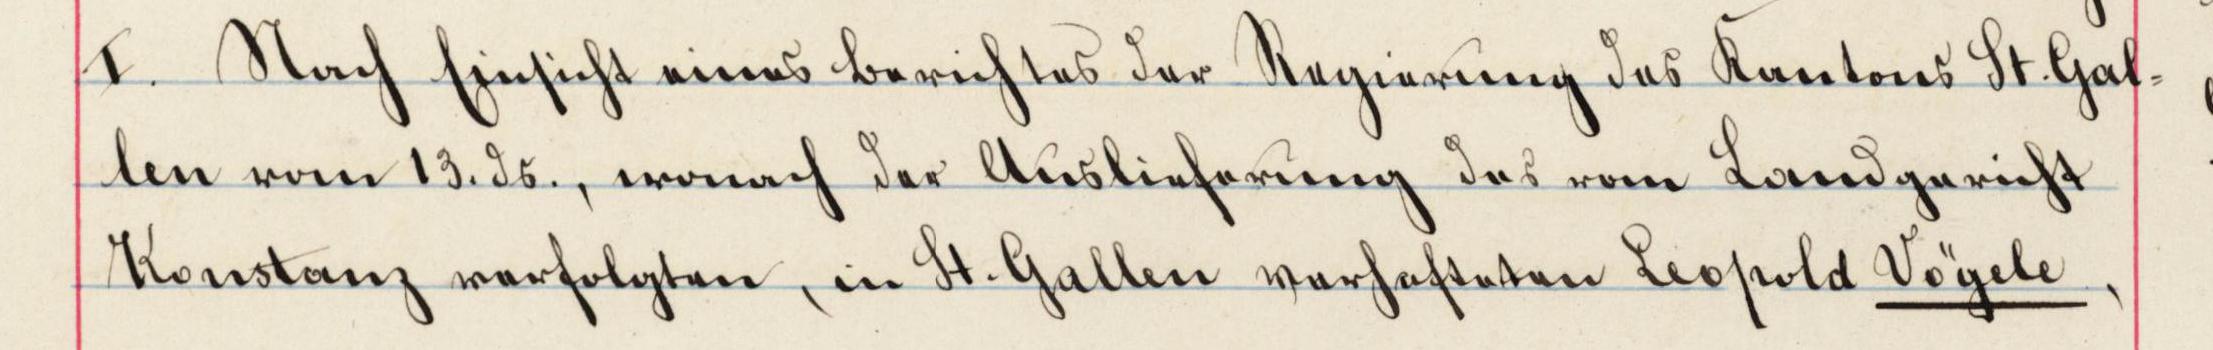 I. Nach Einsicht eines Berichtes der Regierung des Kantons St. Gal-
len vom 13. ds., wonach der Auslieferung des vom Landgericht
Konstanz verfolgten, in St. Gallen verhafteten Leopold Vögele,